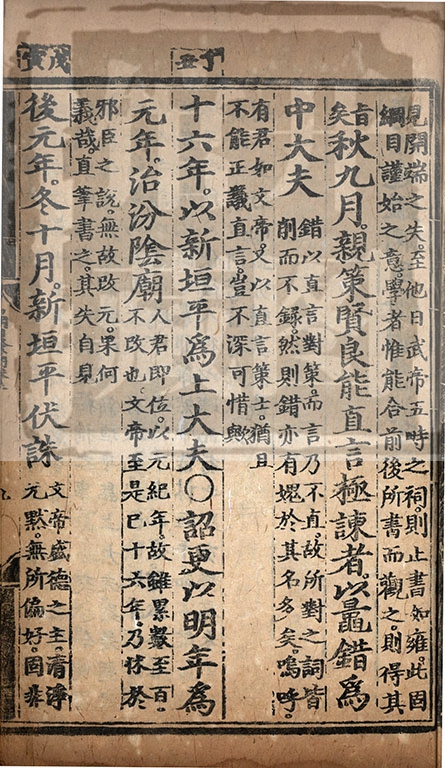 見開端之失。至他日武帝五時之祠。則止書如雍。此因
綱目謹始之意。學者惟能合前後所書而觀之。則得其
旨矣
秋九月。親策賢良能直言極諫者。以鼂錯爲
中大夫
錯以直言對策。而言乃不直。故所對之詞皆
削而不錄。然則錯亦有媿於其名多矣。嗚呼。
有君如文帝。又以直言策士。猶且
不能正議直言。豈不深可惜歟
丁丑
十六年。以新垣平爲上大夫○詔更以明年爲
元年。治汾陰廟
人君即位。以元紀年。故雖累數至百。
不改也。文帝至是巳十六年。乃怵於
邪臣之說。無故改元。果何
義哉。直筆書之。其失自見
戊寅
後元年。冬十月。新垣平伏誅
文帝盛德之主。清淨
元默。無所偏好。固非